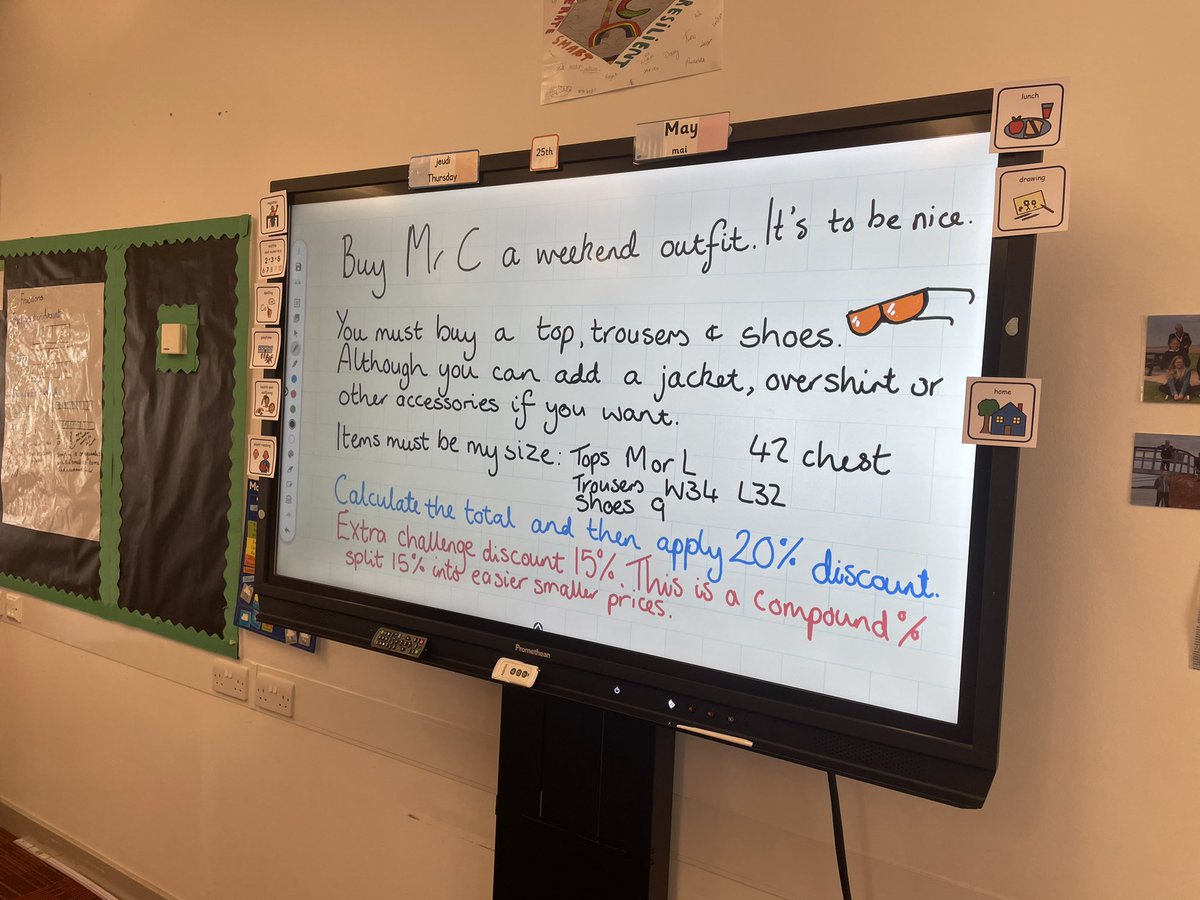 SMART
RESILIENT
jeudi
Thursday
25th
May
mai
lunch
drawing
home
Buy Mr C a weekend outfit. It's to be nice.
You must buy a top, trousers & shoes.
Although you can add a jacket, overshirt or
other accessories if you want.
Items must be my size: Tops M or L 42 chest
Trousers W34 L32
Shoes 9
Calculate the total and then apply 20% discount.
Extra challenge discount 15%. This is a compound %
split 15% into easier smaller prices.
Promethean
Fractions